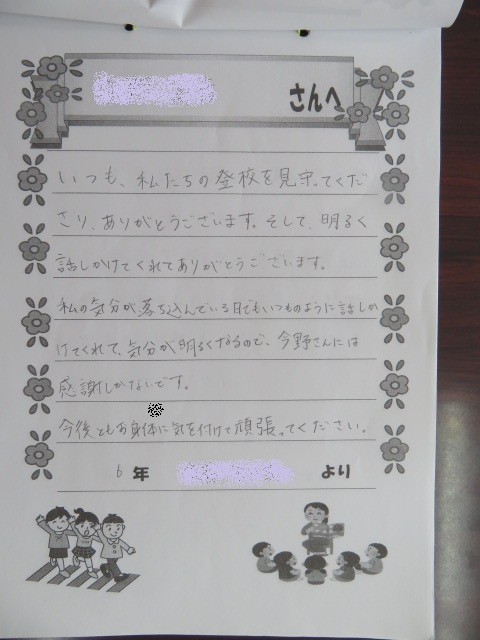 さんへ
いつも、私たちの登校を見守ってくだ
さり、ありがとうございます。そして、明るく
話しかけてくれてありがとうございます。
私の気分が落ち込んでいる日でもいつものように話しか
けてくれて、気分が明るくなるので、今野さんには
感謝しかないです。
今後ともお身体に気を付けて頑張ってください。
6年 より